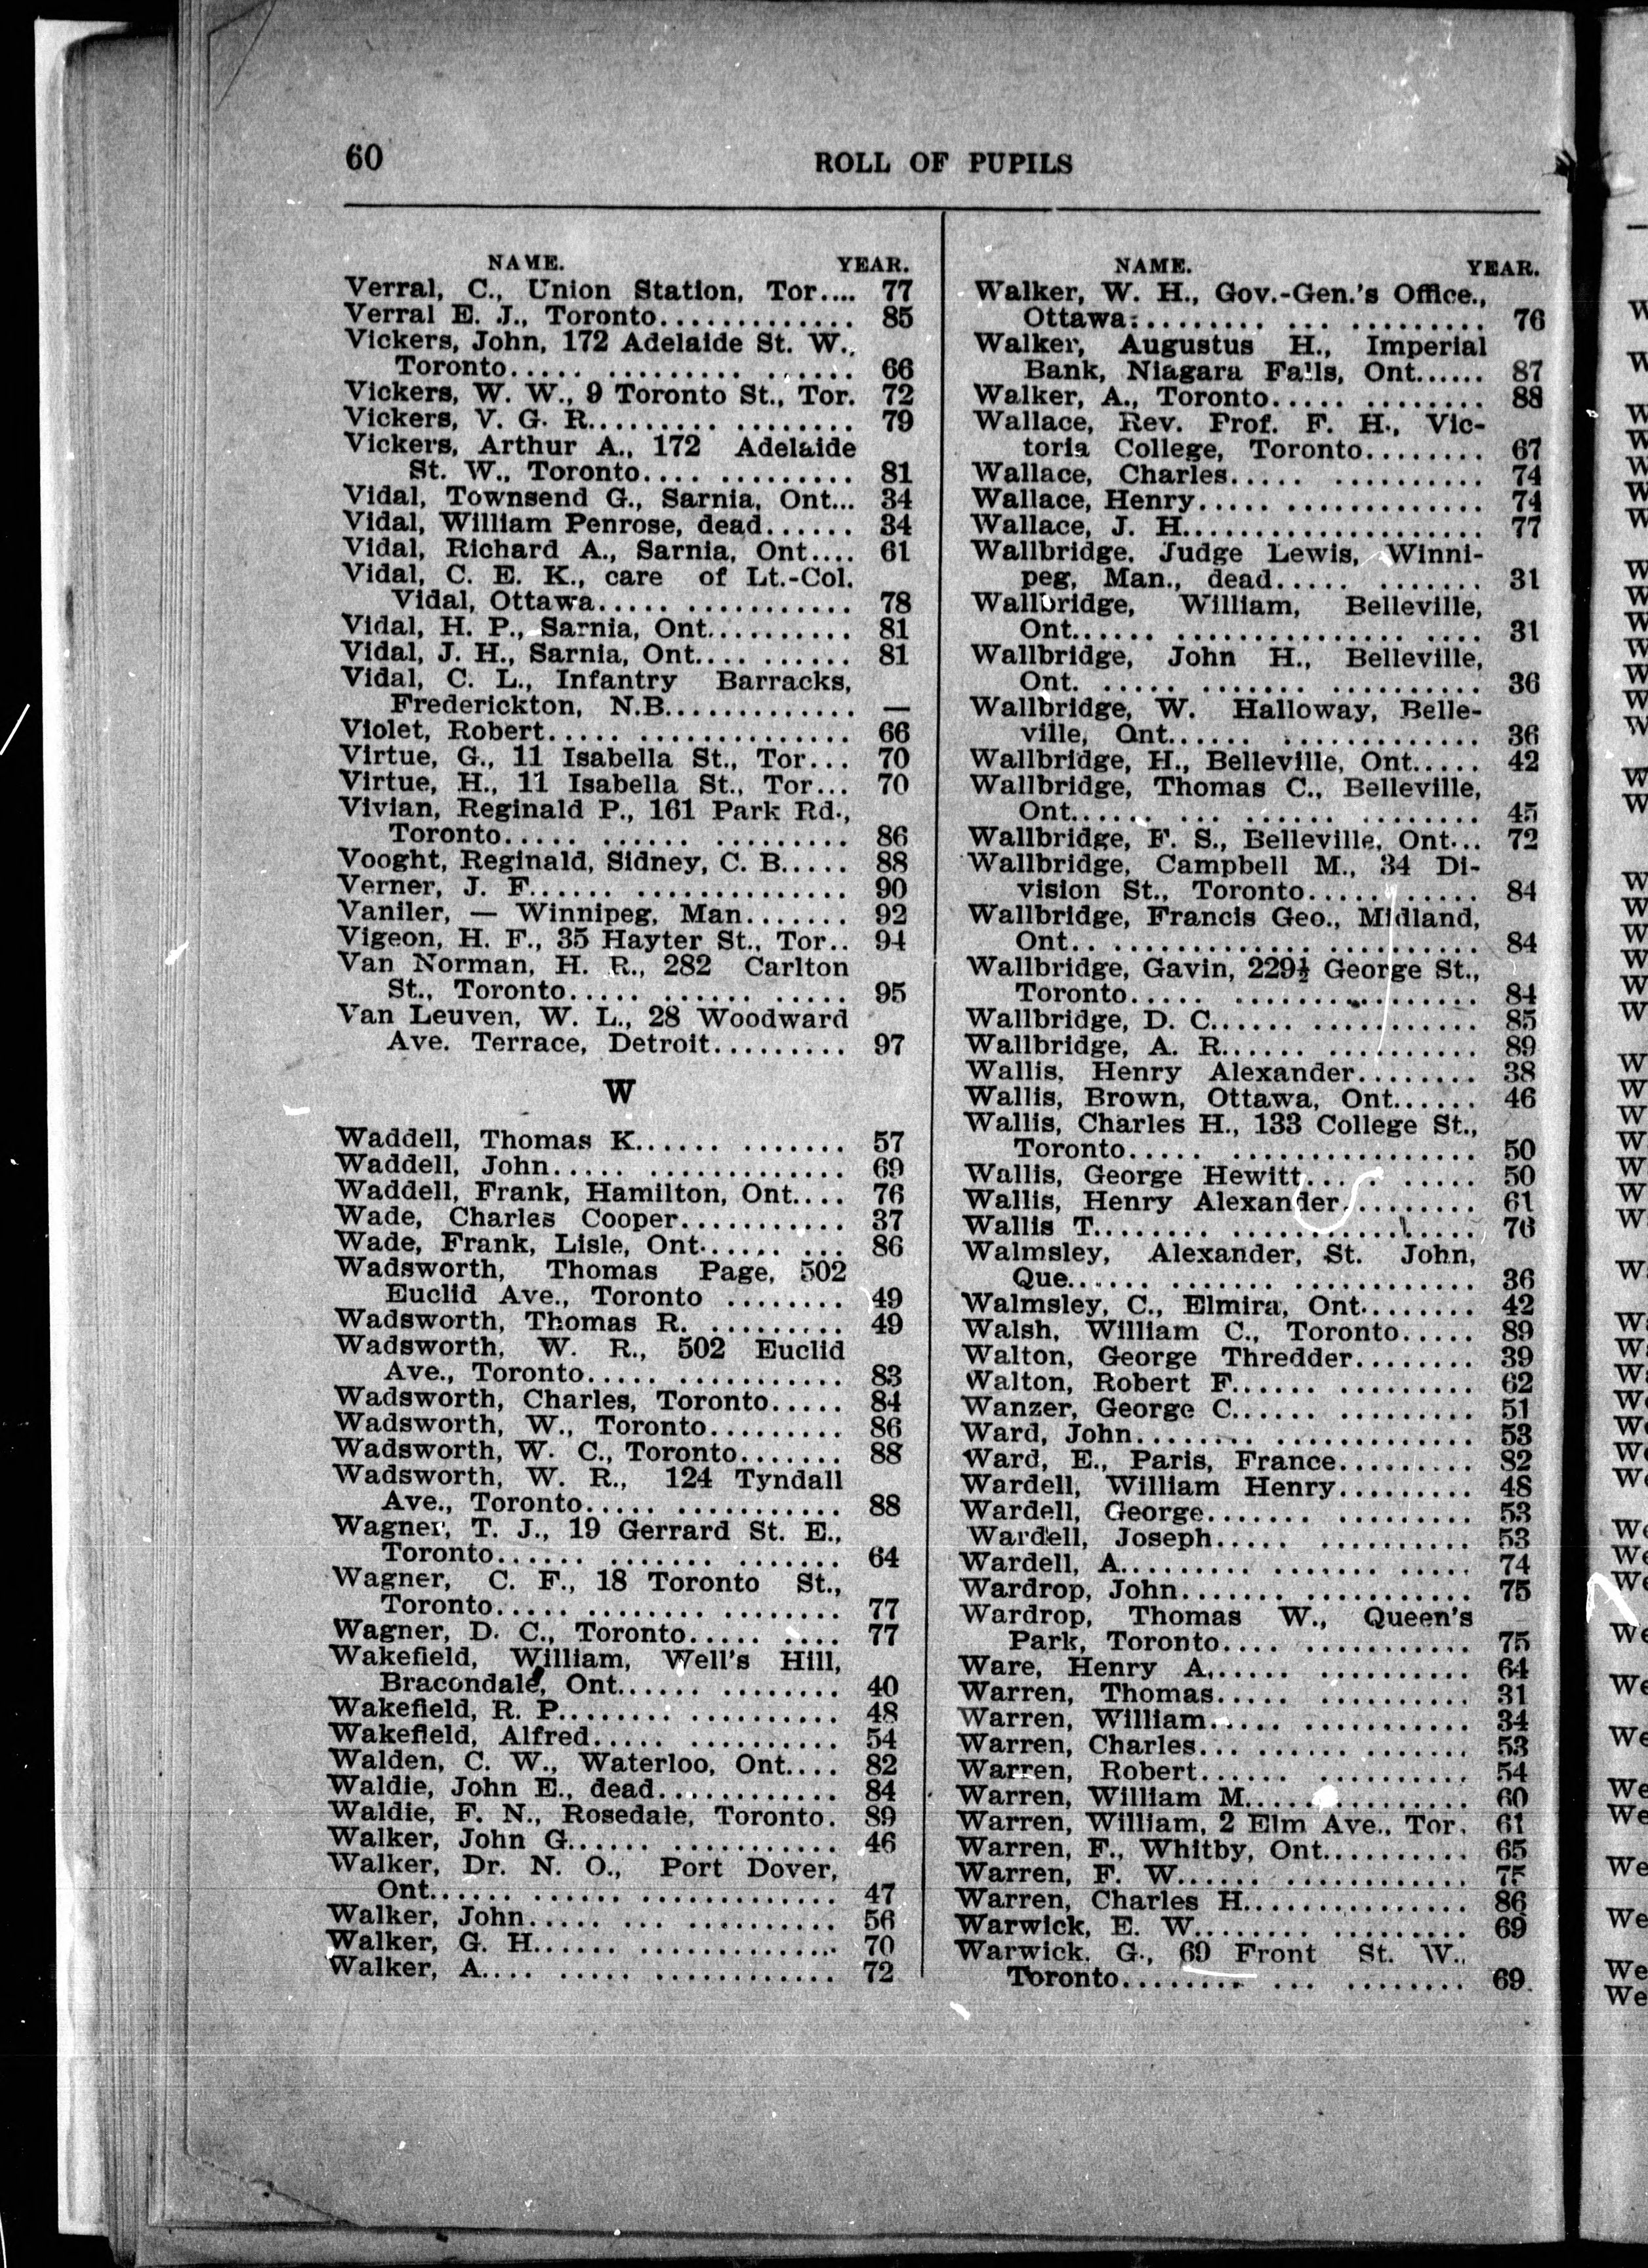 60
ROLL OF PUPILS
NAME. YEAR.
Verral, C., Union Station, Tor.... 77
Verral E. J., Toronto............. 85
Vickers, John, 172 Adelaide St. W.,
Toronto..... ......... ...... 66
Vickers, W. W., 9 Toronto St., Tor. 72
Vickers, V. G. R......... ........ 79
Vickers, Arthur A., 172 Adelaide
St. W., Toronto.... ......... 81
Vidal, Townsend G., Sarnia, Ont... 34
Vidal, William Penrose, dead...... 34
Vidal, Richard A., Sarnia, Ont.... 61
Vidal, C. E. K., care of Lt.-Col.
Vidal, Ottawa..... ........... 78
Vidal, H. P., Sarnia, Ont.......... 81
Vidal, J. H., Sarnia, Ont.... ...... 81
Vidal, C. L., Infantry Barracks,
Frederickton, N.B............. —
Violet, Robert..... ............... 66
Virtue, G., 11 Isabella St., Tor... 70
Virtue, H., 11 Isabella St., Tor... 70
Vivian, Reginald P., 161 Park Rd.,
Toronto..... ...... ......... 86
Vooght, Reginald, Sidney, C. B..... 88
Verner, J. F...... ............... 90
Vaniler, — Winnipeg, Man....... 92
Vigeon, H. F., 35 Hayter St., Tor.. 94
Van Norman, H. R., 282 Carlton
St., Toronto..... ...... ..... 95
Van Leuven, W. L., 28 Woodward
Ave. Terrace, Detroit......... 97
W
Waddell, Thomas K...... ....... 57
Waddell, John..... .............. 69
Waddell, Frank, Hamilton, Ont.... 76
Wade, Charles Cooper........... 37
Wade, Frank, Lisle, Ont...... ... 86
Wadsworth, Thomas Page, 502
Euclid Ave., Toronto ........ 49
Wadsworth, Thomas R. .......... 49
Wadsworth, W. R., 502 Euclid
Ave., Toronto..... ........... 83
Wadsworth, Charles, Toronto..... 84
Wadsworth, W., Toronto.......... 86
Wadsworth, W. C., Toronto....... 88
Wadsworth, W. R., 124 Tyndall
Ave., Toronto..... ............ 88
Wagner, T. J., 19 Gerrard St. E.,
Toronto...... ....... ....... 64
Wagner, C. F., 18 Toronto St.,
Toronto..... ......... ........ 77
Wagner, D. C., Toronto..... .... 77
Wakefield, William, Well's Hill,
Bracondale, Ont...... ........ 40
Wakefield, R. P........ .......... 48
Wakefield, Alfred..... ........... 54
Walden, C. W., Waterloo, Ont.... 82
Waldie, John E., dead............. 84
Waldie, F. N., Rosedale, Toronto. 89
Walker, John G...... ............ 46
Walker, Dr. N. O., Port Dover,
Ont...... ...... ............. 47
Walker, John..... ... .......... 56
Walker, G. H...... .............. 70
Walker, A.... ..... ............. 72
NAME. YEAR.
Walker, W. H., Gov.-Gen.'s Office.,
Ottawa:........ ... ......... 76
Walker, Augustus H., Imperial
Bank, Niagara Falls, Ont...... 87
Walker, A., Toronto..... ........ 88
Wallace, Rev. Prof. F. H., Vic-
toria College, Toronto........ 67
Wallace, Charles..... .......... 74
Wallace, Henry..... ............. 74
Wallace, J. H.................... 77
Wallbridge, Judge Lewis, Winni-
peg, Man., dead..... ....... 31
Wallbridge, William, Belleville,
Ont...... ............... .... 31
Wallbridge, John H., Belleville,
Ont. ..... ....... .......... 36
Wallbridge, W. Halloway, Belle-
ville, Ont...... ............. 36
Wallbridge, H., Belleville, Ont..... 42
Wallbridge, Thomas C., Belleville,
Ont...... ... ...... ........ 45
Wallbridge, F. S., Belleville, Ont... 72
Wallbridge, Campbell M., 34 Di-
vision St., Toronto........... 84
Wallbridge, Francis Geo., Midland,
Ont.. .............. .......... 84
Wallbridge, Gavin, 229½ George St.,
Toronto..... ................ 84
Wallbridge, D. C...... ........... 85
Wallbridge, A. R...... .......... 89
Wallis, Henry Alexander........ 38
Wallis, Brown, Ottawa, Ont...... 46
Wallis, Charles H., 133 College St.,
Toronto..... ................ 50
Wallis, George Hewitt..... ..... 50
Wallis, Henry Alexander......... 61
Wallis T........ ............... 76
Walmsley, Alexander, St. John,
Que...... ....... ............ 36
Walmsley, C., Elmira, Ont........ 42
Walsh, William C., Toronto..... 89
Walton, George Thredder........ 39
Walton, Robert F...... ......... 62
Wanzer, George C...... ......... 51
Ward, John........ ............. 53
Ward, E., Paris, France.......... 82
Wardell, William Henry......... 48
Wardell, George....... ......... 53
Wardell, Joseph..... .......... 53
Wardell, A......... ....... ..... 74
Wardrop, John....... ........... 75
Wardrop, Thomas W., Queen's
Park, Toronto.... ........... 75
Ware, Henry A...... .......... 64
Warren, Thomas..... .......... 31
Warren, William..... ........... 34
Warren, Charles... ..... ....... 53
Warren, Robert...... .......... 54
Warren, William M............... 60
Warren, William, 2 Elm Ave., Tor. 61
Warren, F., Whitby, Ont.......... 65
Warren, F. W...... ............ 75
Warren, Charles H............... 86
Warwick, E. W........ ......... 69
Warwick, G., 69 Front St. W.,
Toronto........ ... ........ 69